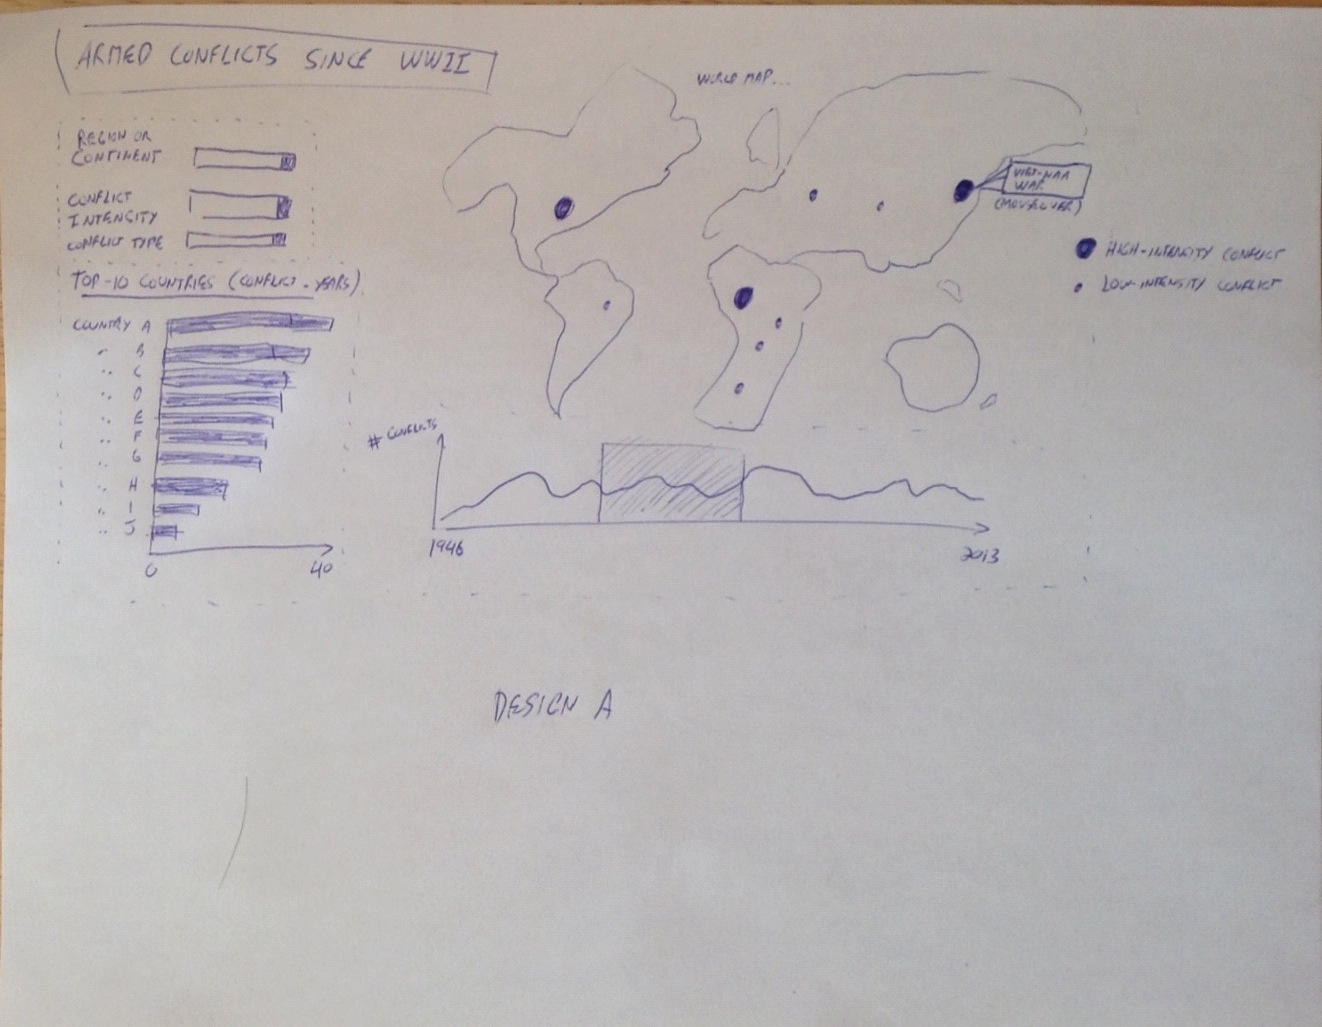 ARMED CONFLICTS SINCE WWII
WORLD MAP...
REGION OR
CONTINENT
CONFLICT
INTENSITY
CONFLICT TYPE
TOP-10 COUNTRIES (CONFLICT-YEARS)
COUNTRY A
" B
" C
" D
" E
" F
" G
" H
" I
" J
0 40
VIET-NAM
WAR
(MOUSEOVER)
HIGH-INTENSITY CONFLICT
LOW-INTENSITY CONFLICT
# CONFLICTS
1946 2013
DESIGN A